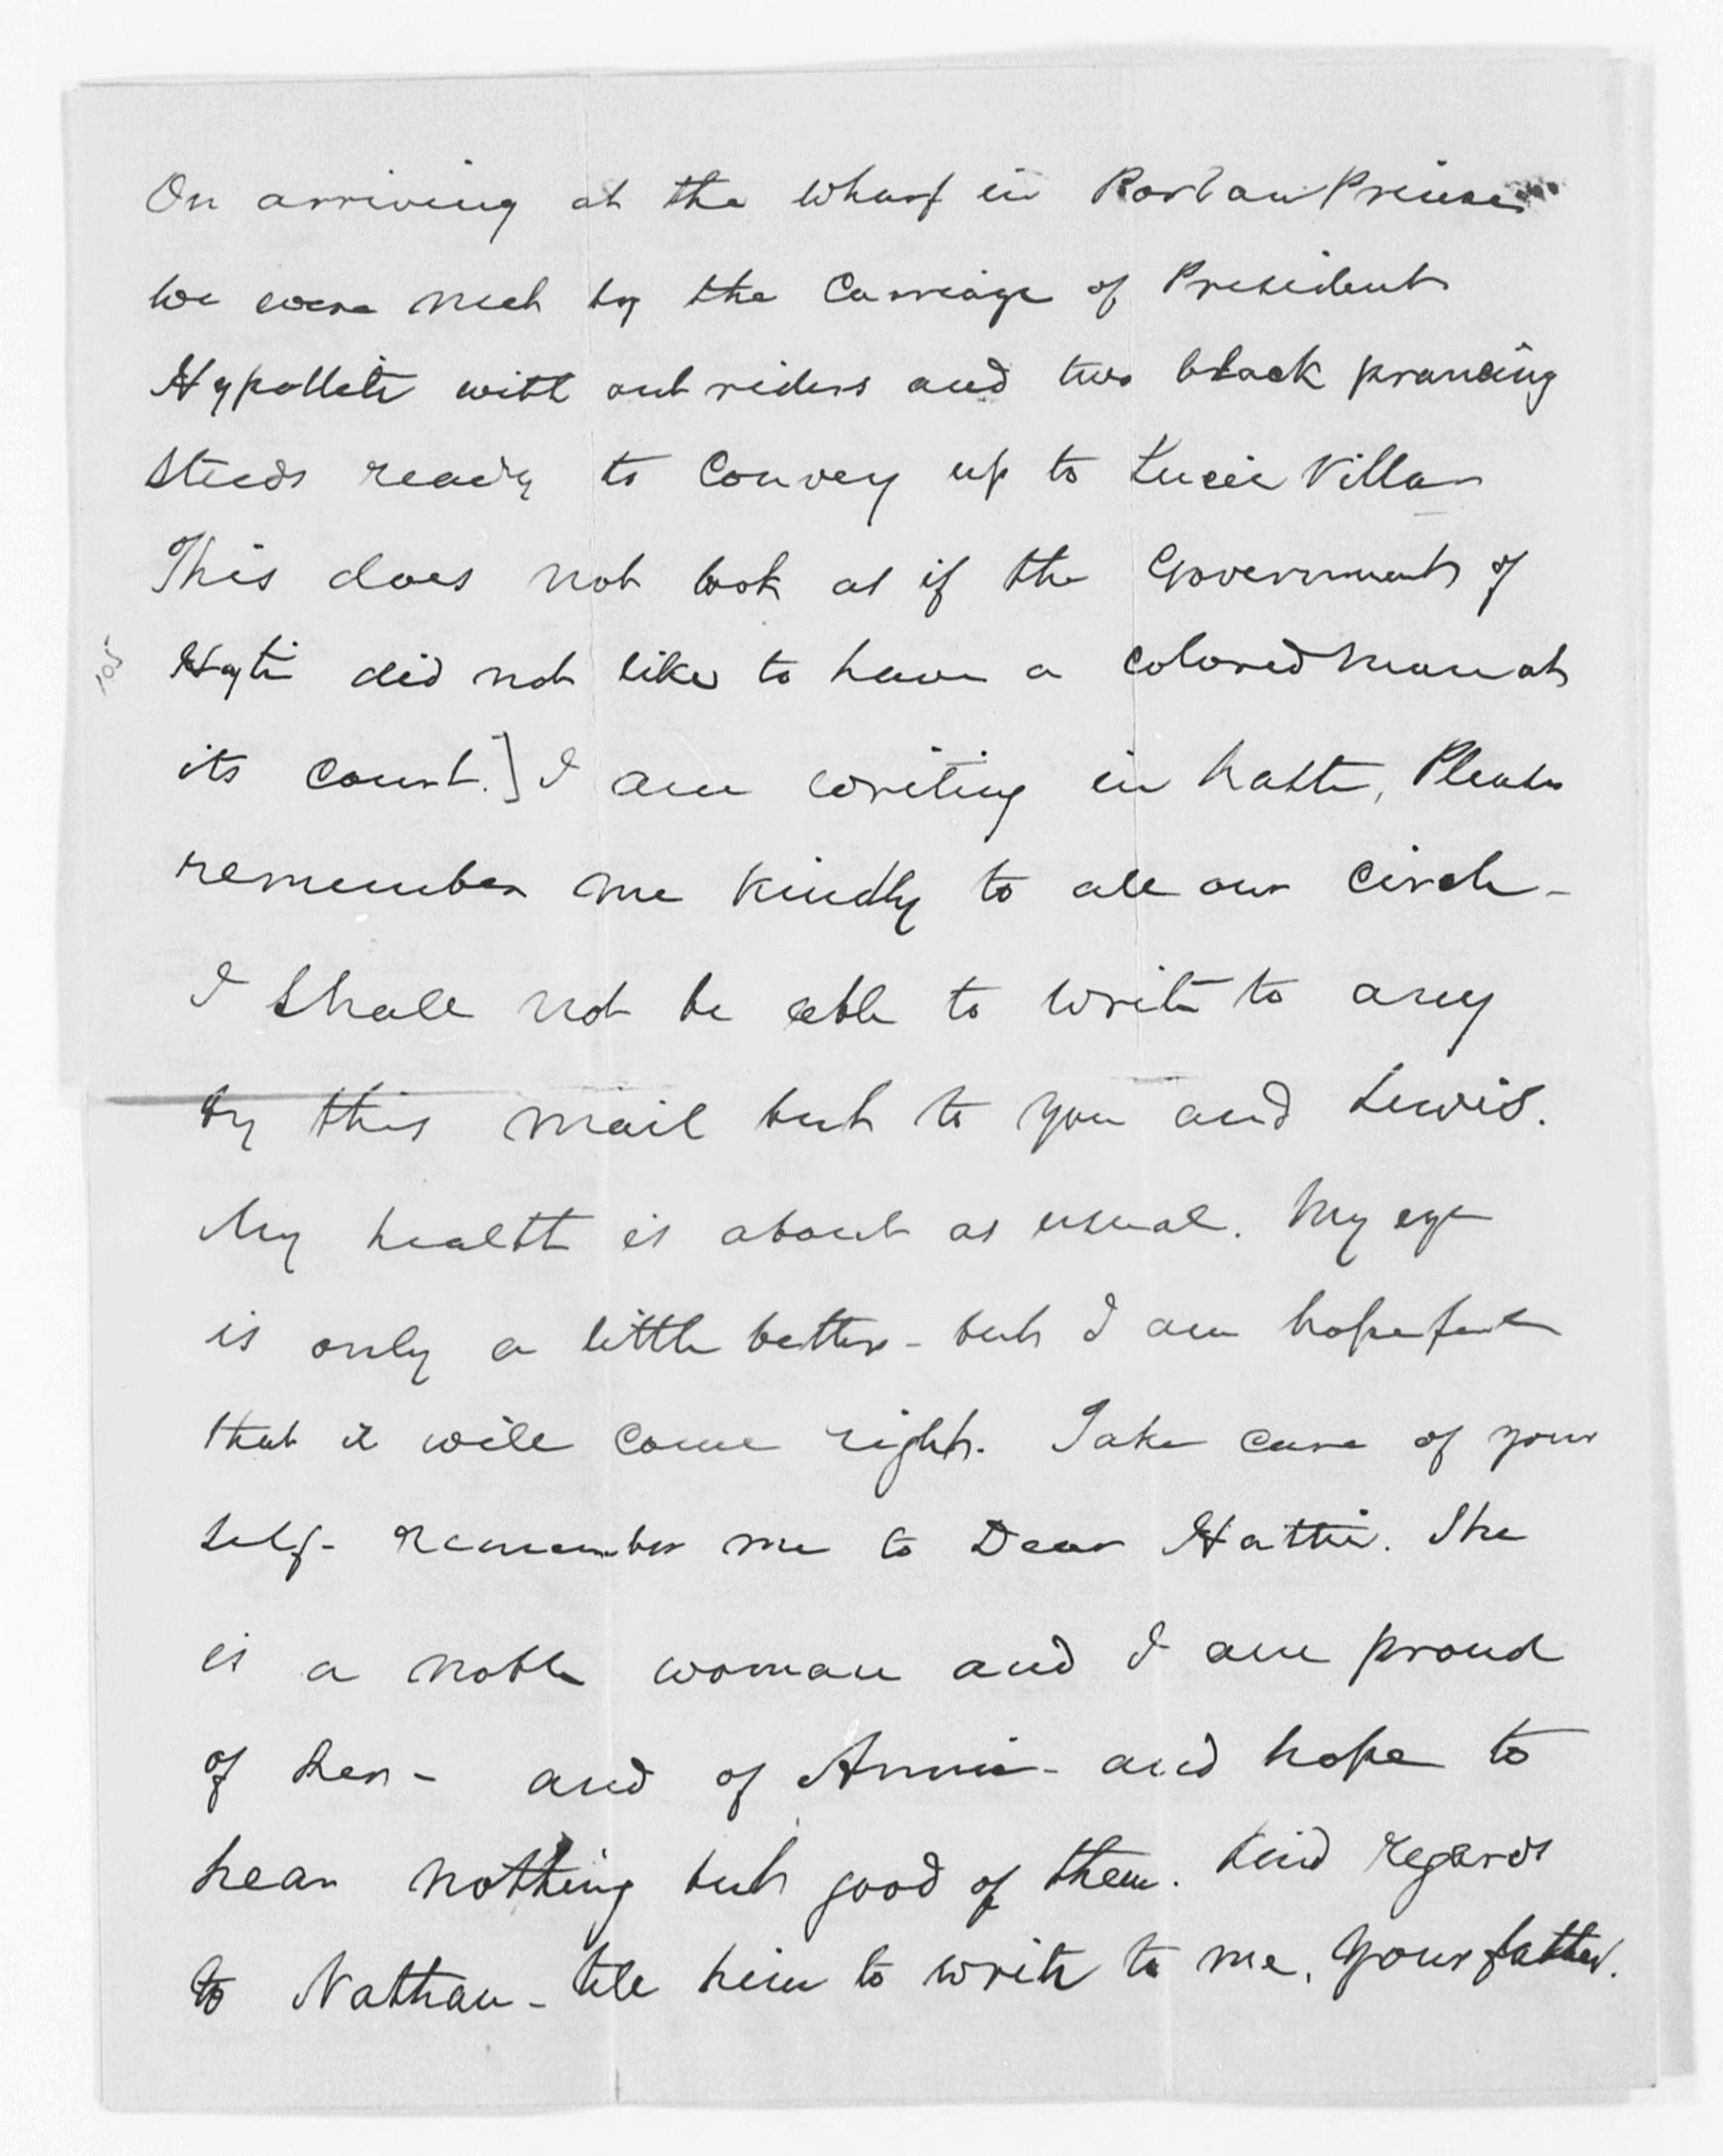 On arriving at the wharf in Portau Prince
we were met by the Carriage of President
Hypollite with out riders and two black prancing
steeds ready to Convey up to Lucie Villa
This does not look as if the Government of
Hayti did not like to have a colored man at
its court.] I am writing in haste, Please
remember me kindly to all our circle-
I shall not be able to write to any
by this mail but to you and Lewis.
My health is about as usual. My eye
is only a little better - but I am hopeful
that it will come right. Take care of your
self- remember me to Dear Hattie. She
is a noble woman and I am proud
of her - and of Annie - and hope to
hear nothing but good of them. Kind regards
to Nathan - tell him to write to me. Your father.
105